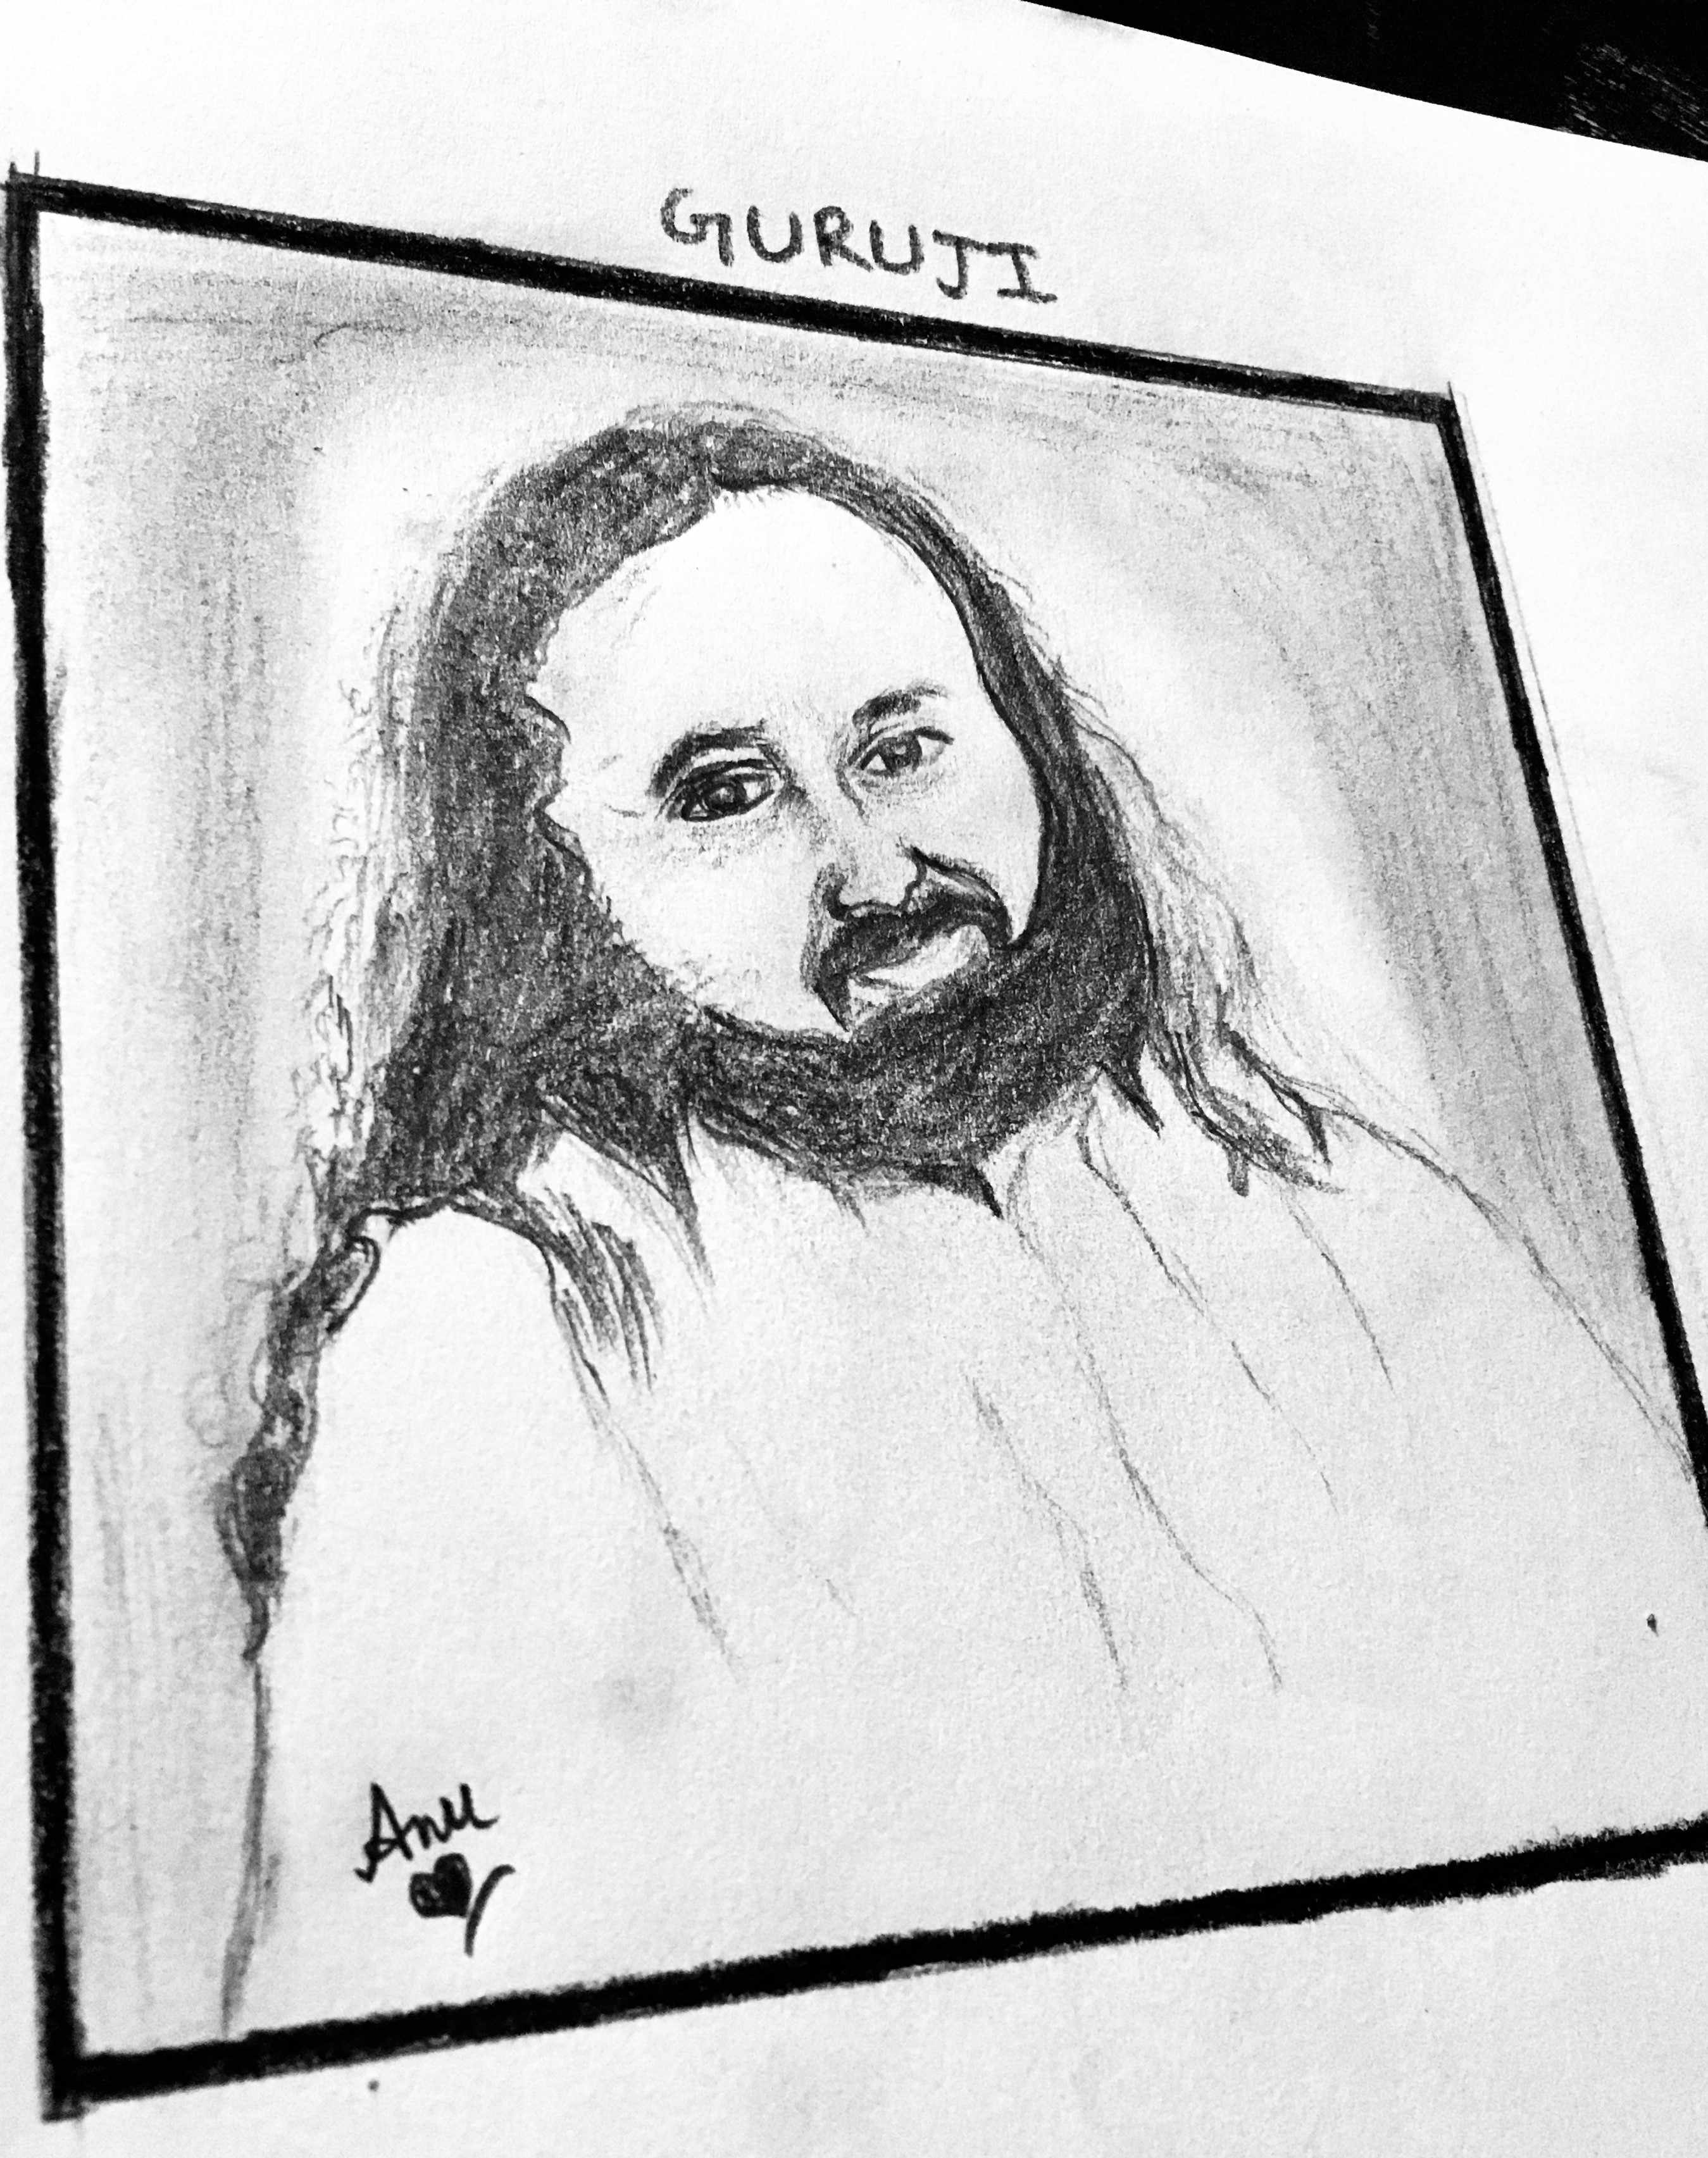 GURUJI
Anu